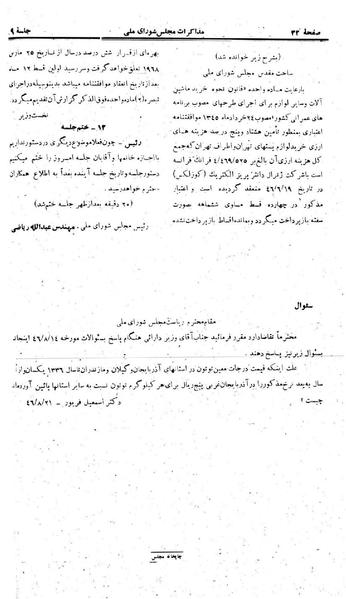 صفحهٔ ۳۲
مذاکرات مجلس شورای ملی
جلسهٔ ۹
(بشرح زیر خوانده شد)
ساحت مقدس مجلس شورای ملی
بارعایت ماده واحده «قانون نحوه خرید ماشین
آلات وسایر لوازم برای اجرای طرحهای مصوب برنامه
های عمرانی کشور» مصوب ۲۴ خرداد ماه ۱۳۴۵ موافقتنامه
اعتباری بمنظور تأمین هشتاد وپنج درصد هزینه های
ارزی خرید لوازم پستهای تهران واطراف تهران که جمع
کل هزینه ارزی آن بالغ بر ۴/۴۶۹/۵۲۵ فرانک فرانسه
است باشرکت ژنرال دانتر پریز الکتریک (کوژلکس)
در تاریخ ۴۶/۶/۱۹ منعقد گردیده است و اعتبار
مذکور در چهارده قسط مساوی ششماهه صورت
سفته بازپرداخت میگردد ومانده اقساط بازپرداخت نشده
بهره‌ای از قرار شش درصد در سال از تاریخ ۲۵ مارس
۱۹۶۸ تعلق خواهد گرفت وسررسید اولین قسط ۱۲ ماه
بعد از تاریخ انعقاد موافقتنامه میباشد بدینوسیله در اجرای
تبصره (۲) ماده واحده فوق الذکر گزارش آن تقدیم میگردد.
نخست وزیر
۱۳ - ختم جلسه
رئیس - چون فعلا موضوع دیگری در دستور نداریم
با اجازه خانمها و آقایان جلسه امروز را ختم میکنیم
دستور جلسه و تاریخ جلسه آینده بعداً به اطلاع همکاران
محترم خواهد رسید.
(۲۰ دقیقه بعد از ظهر جلسه ختم شد)
رئیس مجلس شورای ملی - مهندس عبدالله ریاضی
سئوال
مقام محترم ریاست مجلس شورای ملی
محترماً تقاضا دارد مقرر فرمائید جناب آقای وزیر دارائی هنگام پاسخ بسئوالات مورخه ۴۶/۸/۱۴ اینجانب
بسئوال زیر نیز پاسخ دهند.
علت اینکه قیمت درجات معین توتون در استانهای آذربایجان و گیلان و مازندران تا سال ۱۳۳۶ یکسان و از
سال به بعد نرخ مذکور را در آذربایجان غربی پنج ریال برای هر کیلوگرم توتون نسبت به سایر استانها پائین آورده‌اند
چیست؟
دکتر اسمعیل فریور - ۴۶/۸/۲۱
چاپخانه مجلس